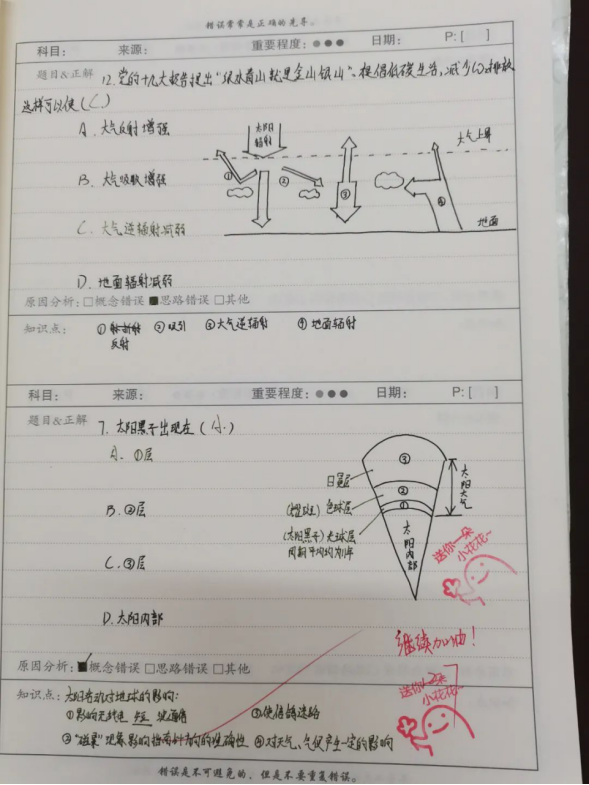 错误常常是正确的先导。
科目： 来源： 重要程度：●●● 日期： P:[ ]
题目&正解 12.党的十九大报告提出“绿水青山就是金山银山”。提倡低碳生活，减少CO₂排放
这样可以使（C）
A．大气反射增强
B．大气吸收增强
C．大气逆辐射减弱
D．地面辐射减弱
太阳辐射
大气上界
① ② ③ ④
地面
原因分析：□概念错误 ■思路错误 □其他
知识点： ① 反射 ②吸引 ③大气逆辐射 ④地面辐射
科目： 来源： 重要程度：●●● 日期： P:[ ]
题目&正解 7.太阳黑子出现在（A）
A．①层
B．②层
C．③层
D．太阳内部
③
日冕层
②
(耀斑)色球层
①
(太阳黑子)光球层
周期平均约为11年
太阳内部
太阳大气
送你一朵小花花~
继续加油！
原因分析：■概念错误 □思路错误 □其他
知识点：太阳活动对地球的影响：
①影响无线电 短 波通信 ③使信鸽迷路
②“磁暴”现象影响指南针指向的准确性 ④对天气、气候产生一定的影响
送你2朵小花花~
错误是不可避免的，但是不要重复错误。